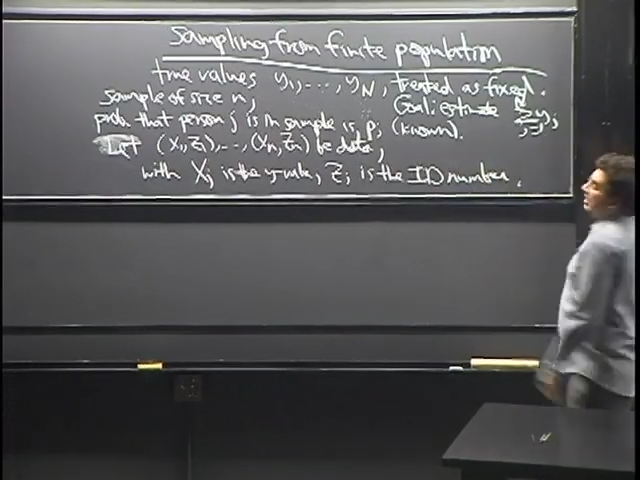 Sampling from finite population
true values y₁, ..., y_N, treated as fixed.
Sample of size n, Goal: estimate \sum_{j=1}^{N} y_j
prob. that person j is in sample is p_j (known).
Let (X₁, Z₁), ..., (X_n, Z_n) be data,
with X_j is the y-value, Z_j is the ID number.